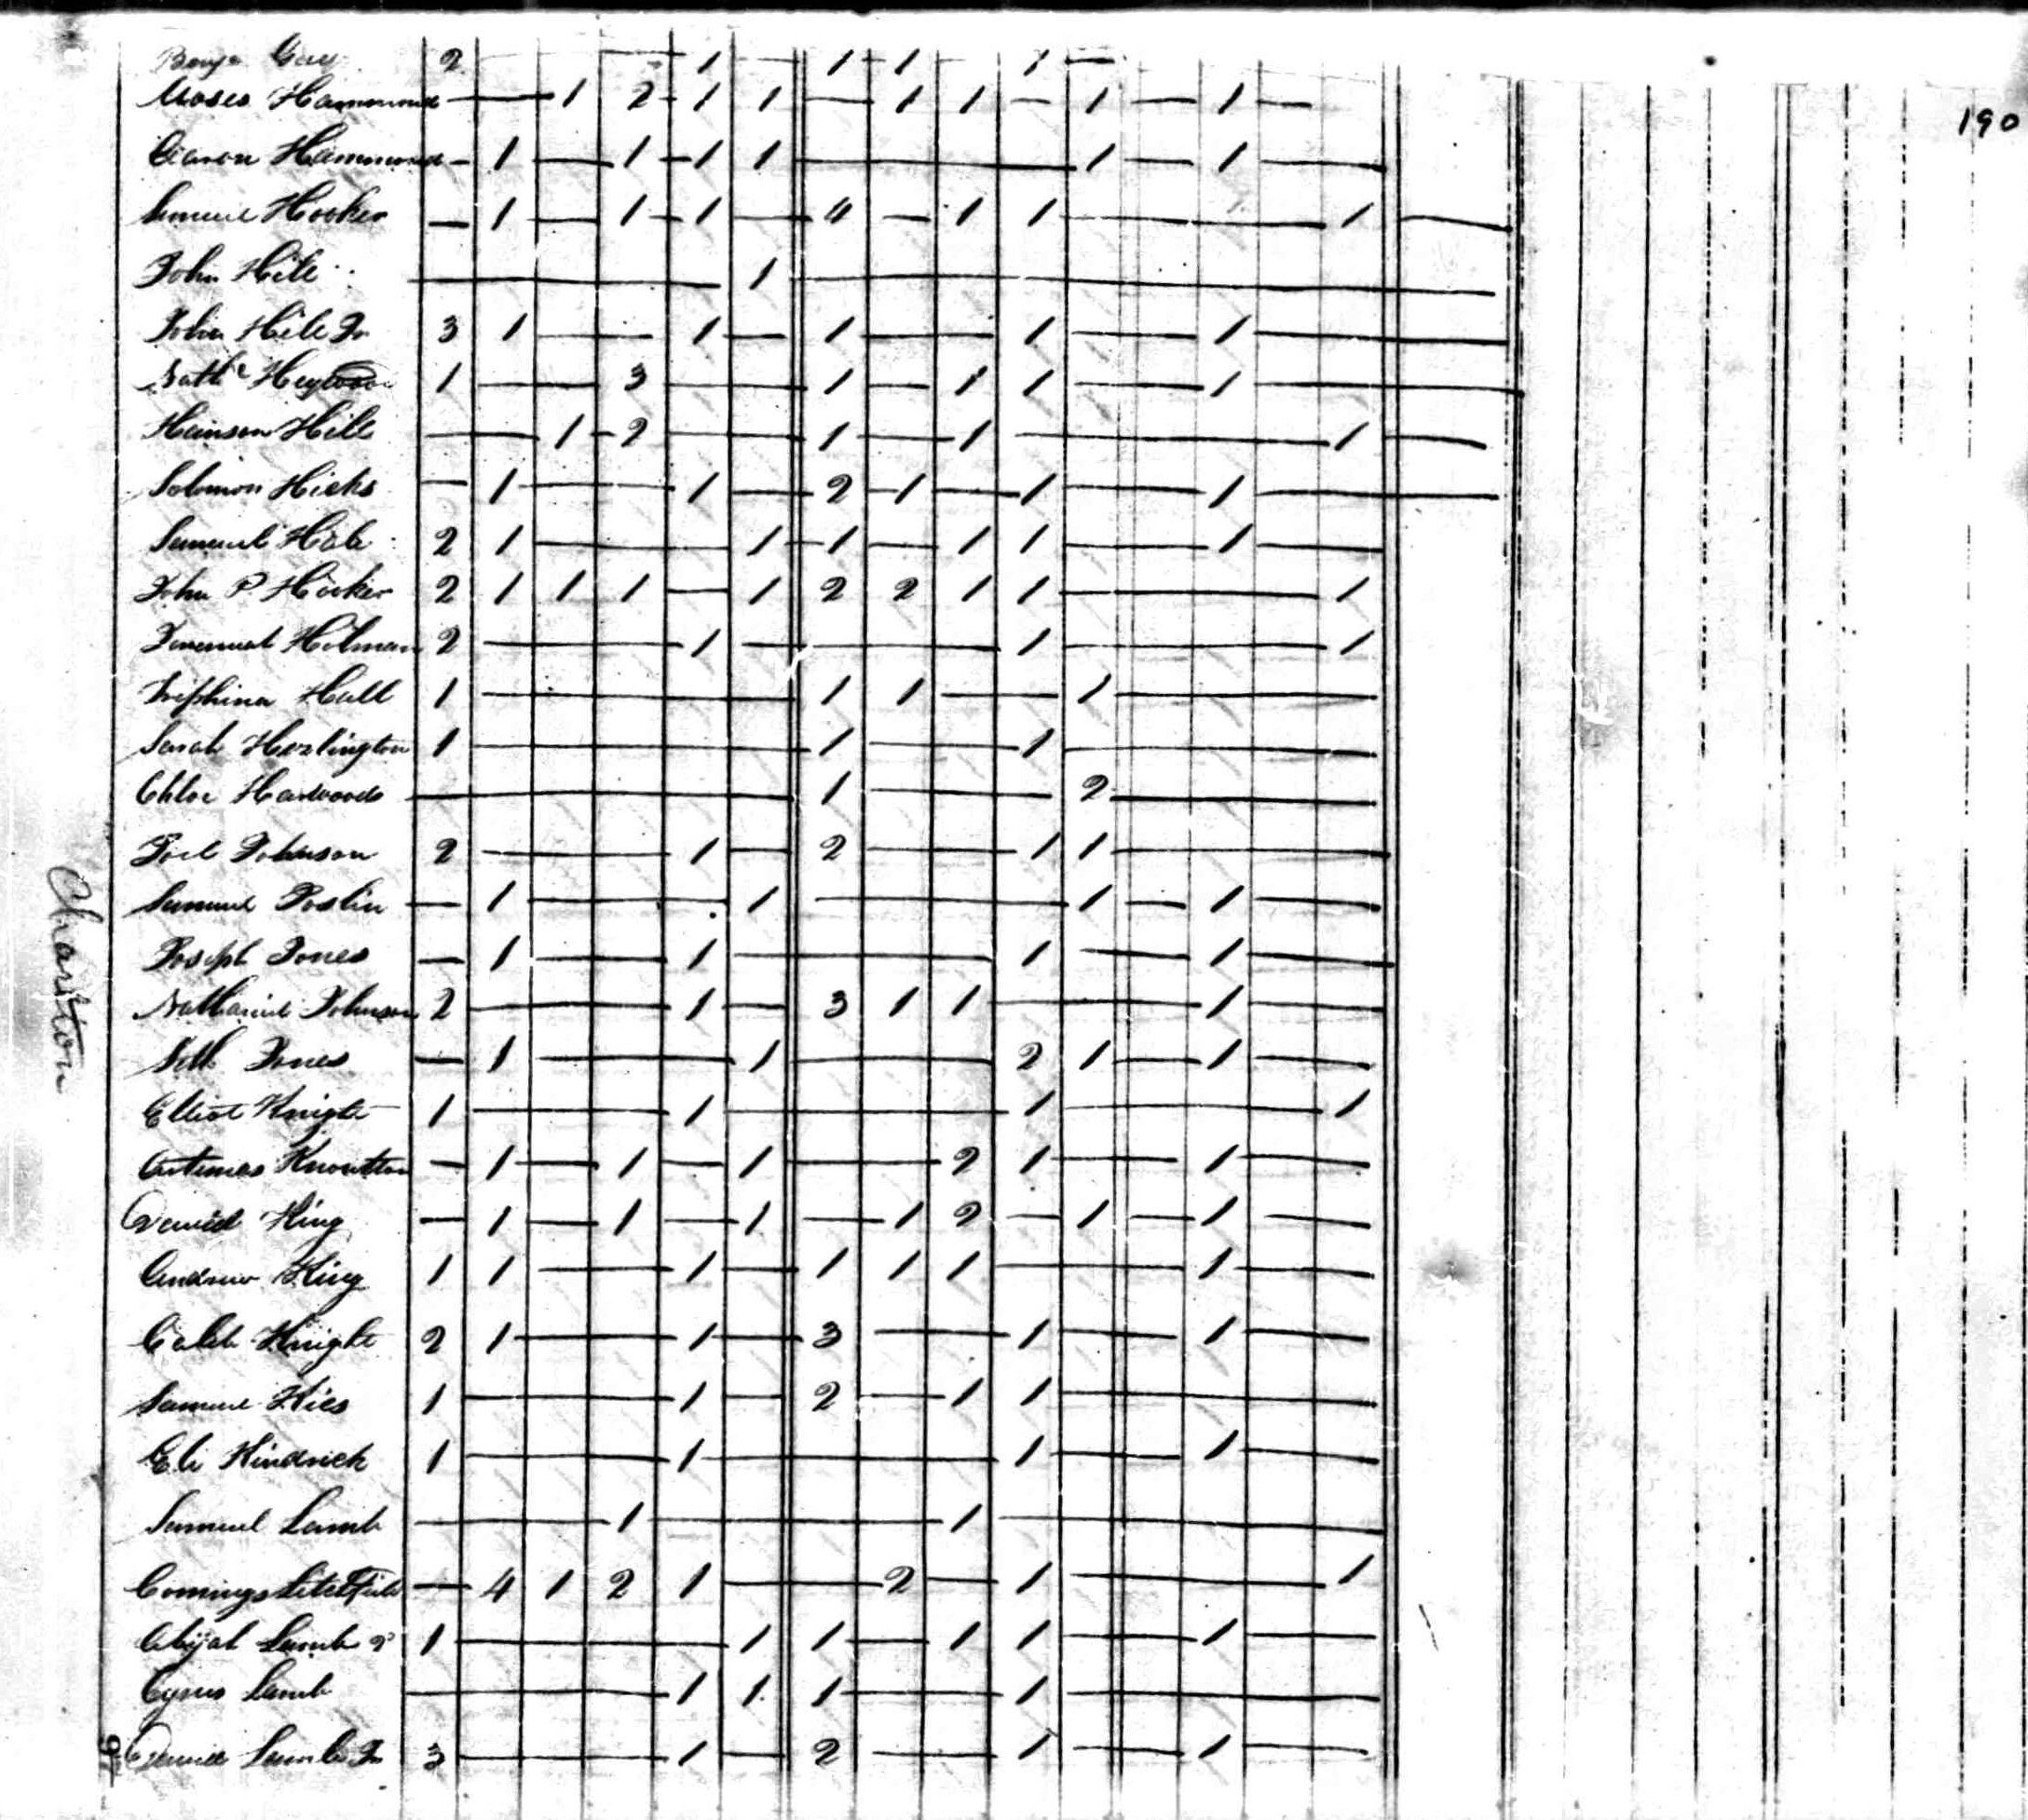 190
Benja Gary 2 — 1 — 1 1 — 1 —
Moses Hammond — 1 2 - 1 1 — 1 1 — 1 — 1 —
Aaron Hammond — 1 — 1 - 1 1 — 1 — 1 —
Samuel Hooker — 1 — 1 - 1 — 4 — 1 1 — 1 —
John Hill — 1 —
John Hill Jr 3 1 — 1 — 1 — 1 — 1 —
Nathl 1 — 3 — 1 — 1 1 — 1 —
Hill — 1 - 2 — 1 — 1 — 1 —
Solomon Hicks — 1 — 1 — 2 - 1 — 1 — 1 —
Samuel 2 1 — 1 - 1 — 1 1 — 1 —
John P Hooker 2 1 1 1 — 1 2 2 1 1 — 1
Holman 2 — 1 — 1 — 1
Hall 1 — 1 1 — 1 —
Sarah 1 — 1 — 1 —
Chloe Harwood — 1 — 2 —
Joel Johnson 2 — 1 — 2 — 1 1 —
Samuel Joslin — 1 — 1 — 1 — 1 —
Joseph Jones — 1 — 1 — 1 — 1 —
Nathaniel Johnson 2 — 1 — 3 1 1 — 1 —
Seth Jones — 1 — 1 — 2 1 — 1 —
Elliot Knight 1 — 1 — 1 — 1
Artemas Knowlton — 1 — 1 — 1 — 2 1 — 1 —
Daniel King — 1 — 1 — 1 — 1 2 — 1 — 1 —
Andrew King 1 1 — 1 — 1 1 1 — 1 —
Caleb Knight 2 1 — 1 — 3 — 1 — 1 —
Samuel Kies 1 — 1 — 2 — 1 1 —
Eli Kindrick 1 — 1 — 1 — 1 —
Samuel Lamb — 1 — 1 —
Comings Litchfield — 4 1 2 1 — 2 — 1 — 1
Abijah Lamb 2d 1 — 1 1 — 1 1 — 1 —
Cyrus Lamb — 1 1 1 — 1 —
Lamb Jr 3 — 1 — 2 — 1 — 1 —
Charlton